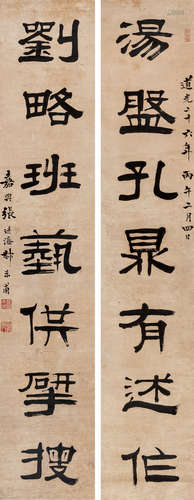 道光二十六年丙午二月四日
湯盤孔鼎有述作
劉略班藝供研搜
嘉興張廷濟叔未甫